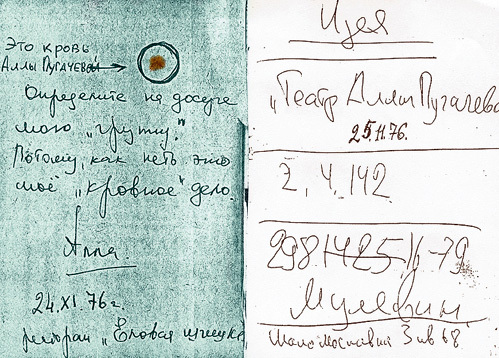 Это кровь
Аллы Пугачевой
Определите на досуге
мою „группу."
Потому, как петь это
моё „кровное" дело.
Алла
24.XI.76г.
ресторан „Еловая шишка
Идея
„Театр Аллы Пугачевой
25.11.76.
2, 4, 142
298
-79
Мулявин